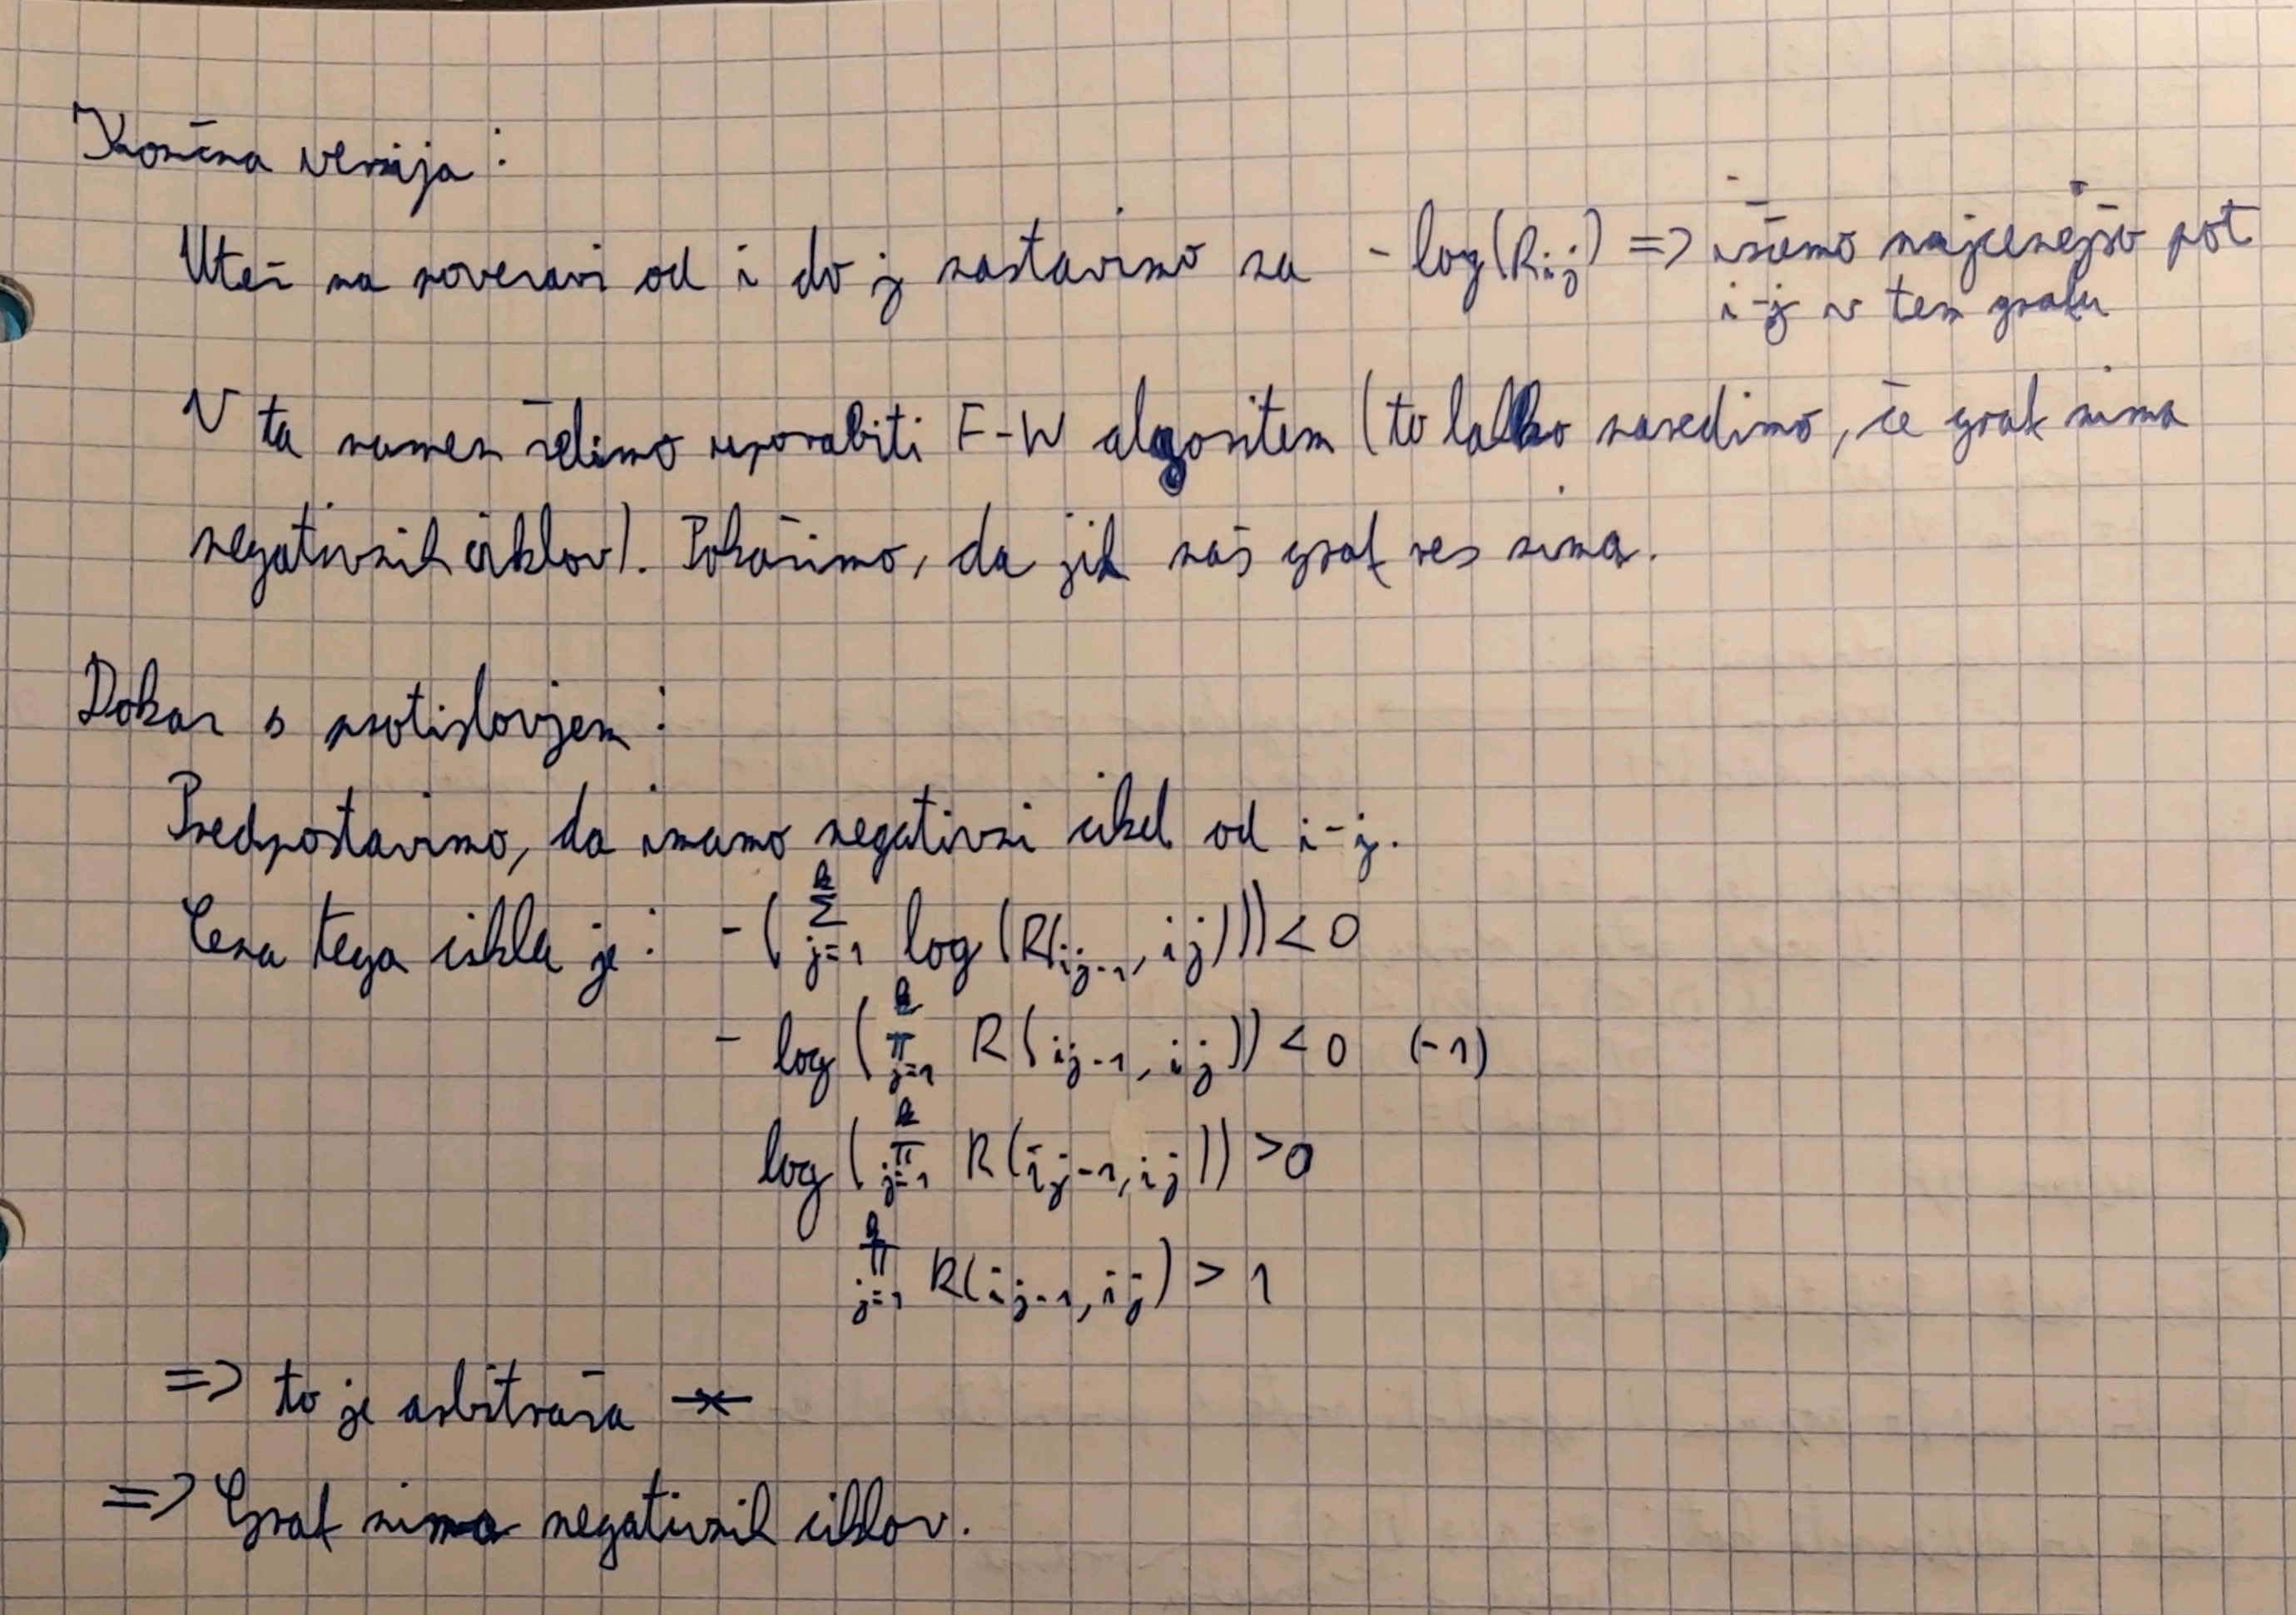 Končna verzija:
Utež na povezavi od i do j nastavimo na -log(Rij) => iščemo najcenejšo pot
i-j v tem grafu
V ta namen želimo uporabiti F-W algoritem (to lahko naredimo, če graf nima
negativnih ciklov). Pokažimo, da jih naš graf res nima.
Dokaz s protislovjem:
Predpostavimo, da imamo negativni cikel od i-j.
Cena tega cikla je: -(∑_{j=1}^{k} log(R(i_{j-1}, i_j))) < 0
- log(∏_{j=1}^{k} R(i_{j-1}, i_j)) < 0 (-1)
log(∏_{j=1}^{k} R(i_{j-1}, i_j)) > 0
∏_{j=1}^{k} R(i_{j-1}, i_j) > 1
=> to je arbitraža
=> Graf nima negativnih ciklov.